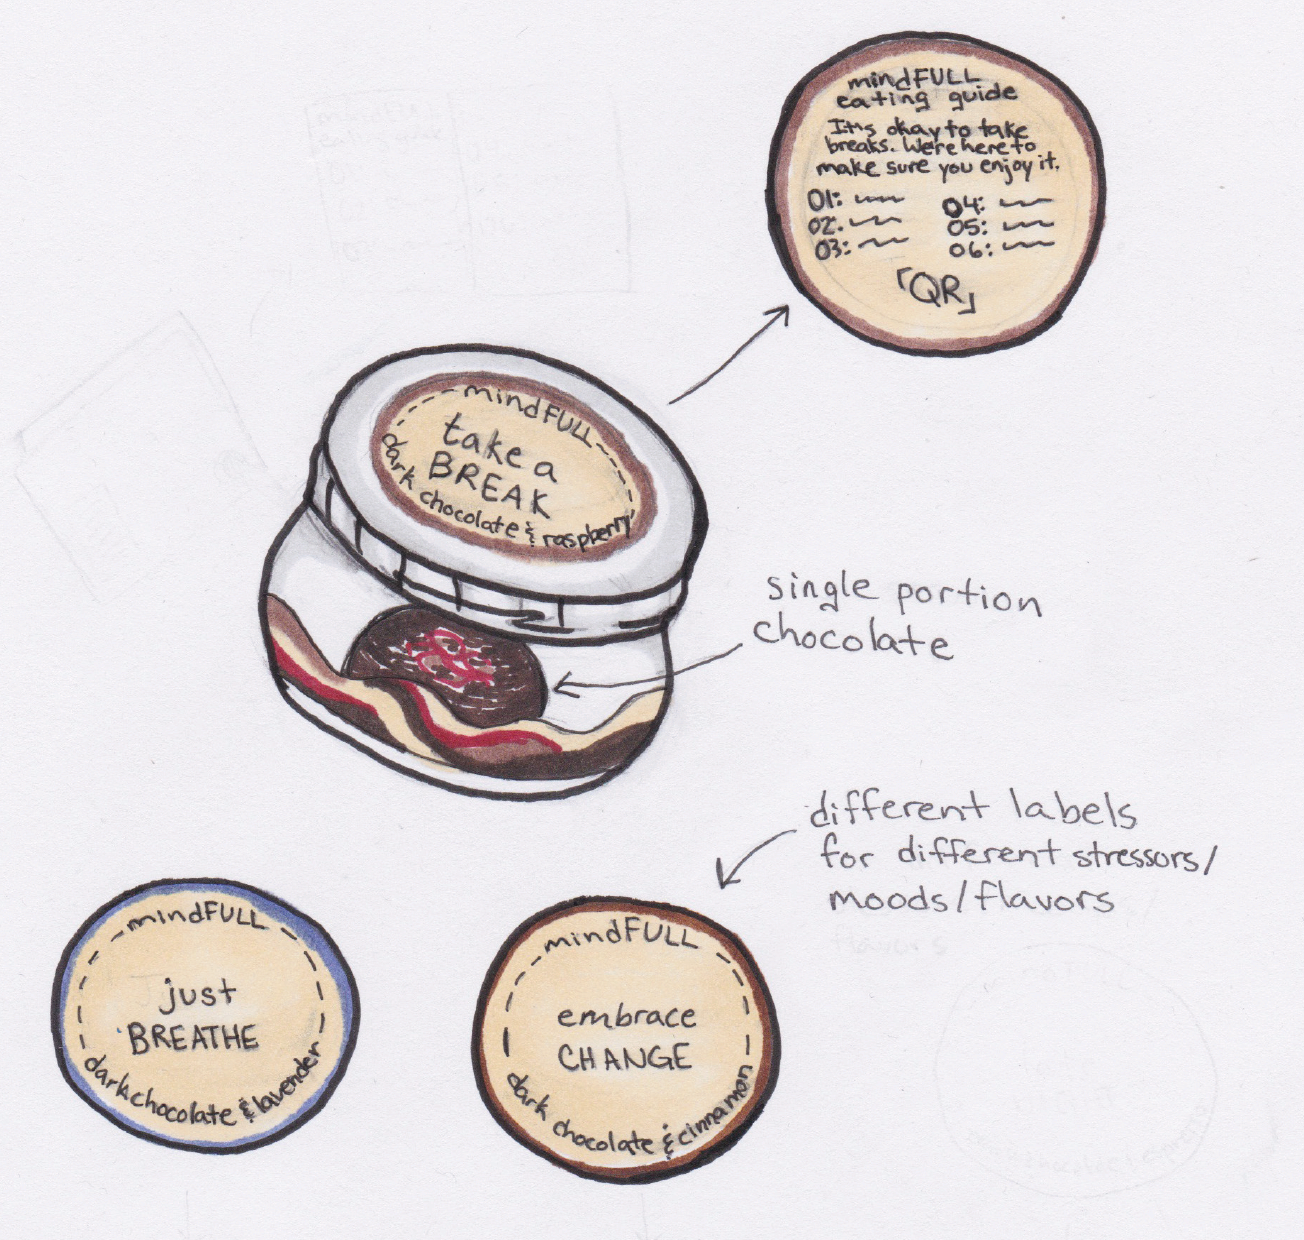 mindFULL
eating guide
It's okay to take
breaks. We're here to
make sure you enjoy it.
01:
02:
03:
04:
05:
06:
「QR」
mindFULL
take a
BREAK
dark chocolate & raspberry
single portion
chocolate
different labels
for different stressors/
moods/flavors
mindFULL
just
BREATHE
dark chocolate & lavender
mindFULL
embrace
CHANGE
dark chocolate & cinnamon
flavors